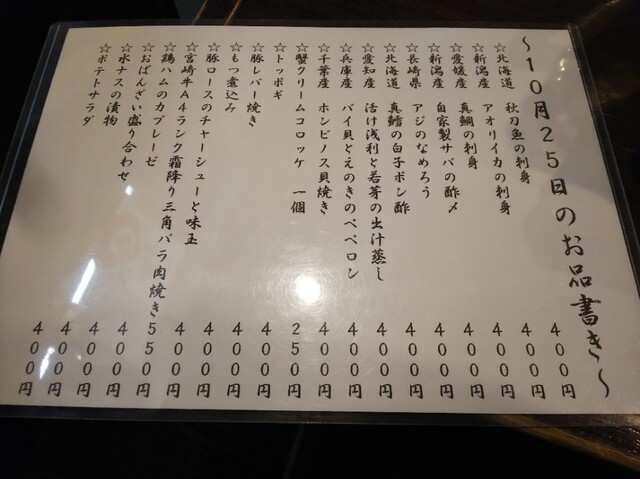 ～１０月２５日のお品書き～
☆北海道 秋刀魚の刺身 ４００円
☆新潟産 アオリイカの刺身 ４００円
☆愛媛産 真鯛の刺身 ４００円
☆新潟産 自家製サバの酢〆 ４００円
☆長崎県 アジのなめろう ４００円
☆北海道 真鱈の白子ポン酢 ４００円
☆愛知産 活け浅利と若芽の出汁蒸し ４００円
☆兵庫産 バイ貝とえのきのペペロン ４００円
☆千葉産 ホンビノス貝焼き ４００円
☆蟹クリームコロッケ 一個 ２５０円
☆トッポギ ４００円
☆豚レバー焼き ４００円
☆もつ煮込み ４００円
☆豚ロースのチャーシューと味玉 ４００円
☆宮崎牛Ａ４ランク霜降り三角バラ肉焼き ５５０円
☆鶏ハムのカプレーゼ ４００円
☆おばんざい盛り合わせ ４００円
☆水ナスの漬物 ４００円
☆ポテトサラダ ４００円